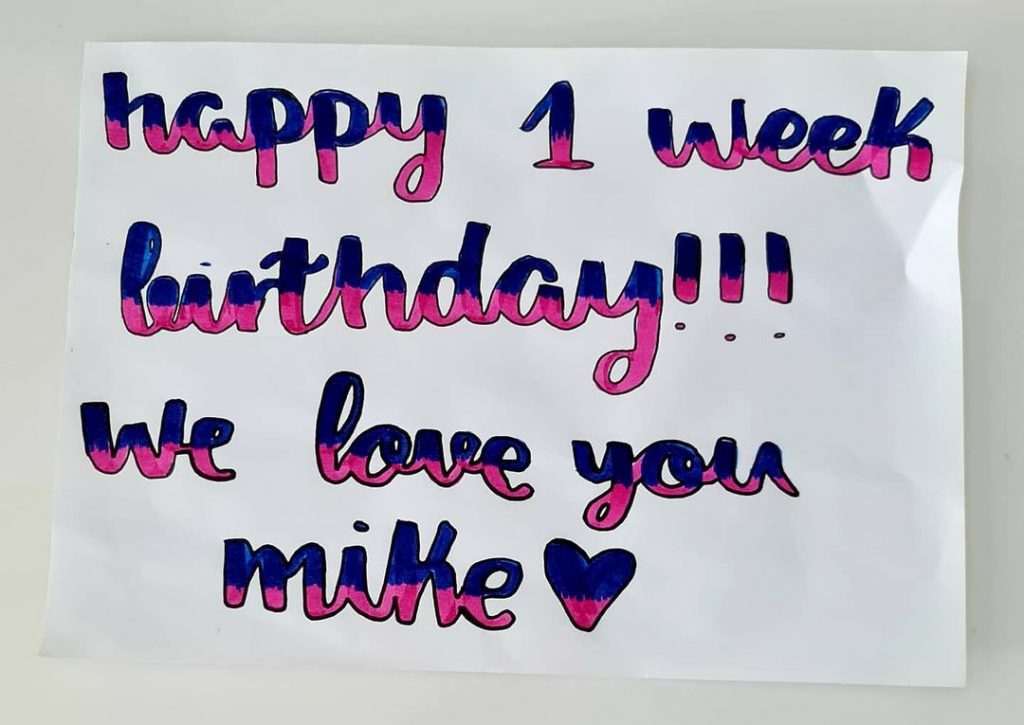 happy 1 week
birthday!!!
we love you
mike♥